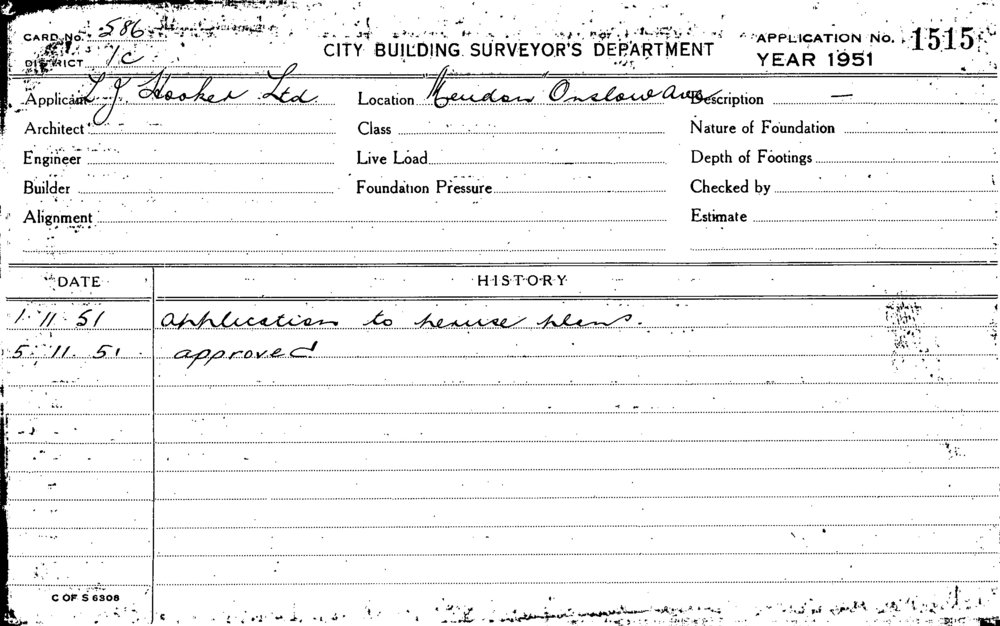 CARD No. 586
DISTRICT 1C
CITY BUILDING SURVEYOR'S DEPARTMENT
APPLICATION No. 1515
YEAR 1951
Applicant L J Hooker Ltd.
Location "Meudon" Onslow Ave
Description —
Architect
Class
Nature of Foundation
Engineer
Live Load
Depth of Footings
Builder
Foundation Pressure
Checked by
Alignment
Estimate
DATE
HISTORY
1 11 51 application to peruse plans.
5. 11. 51 approved
C OF S 6308